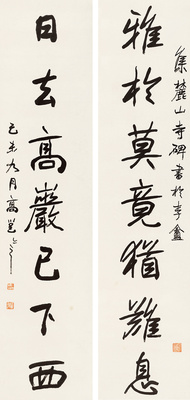 集麓山寺碑書於李鑫
雅於莫竟猶難息
日去高巖已下西
己亥九月高邕